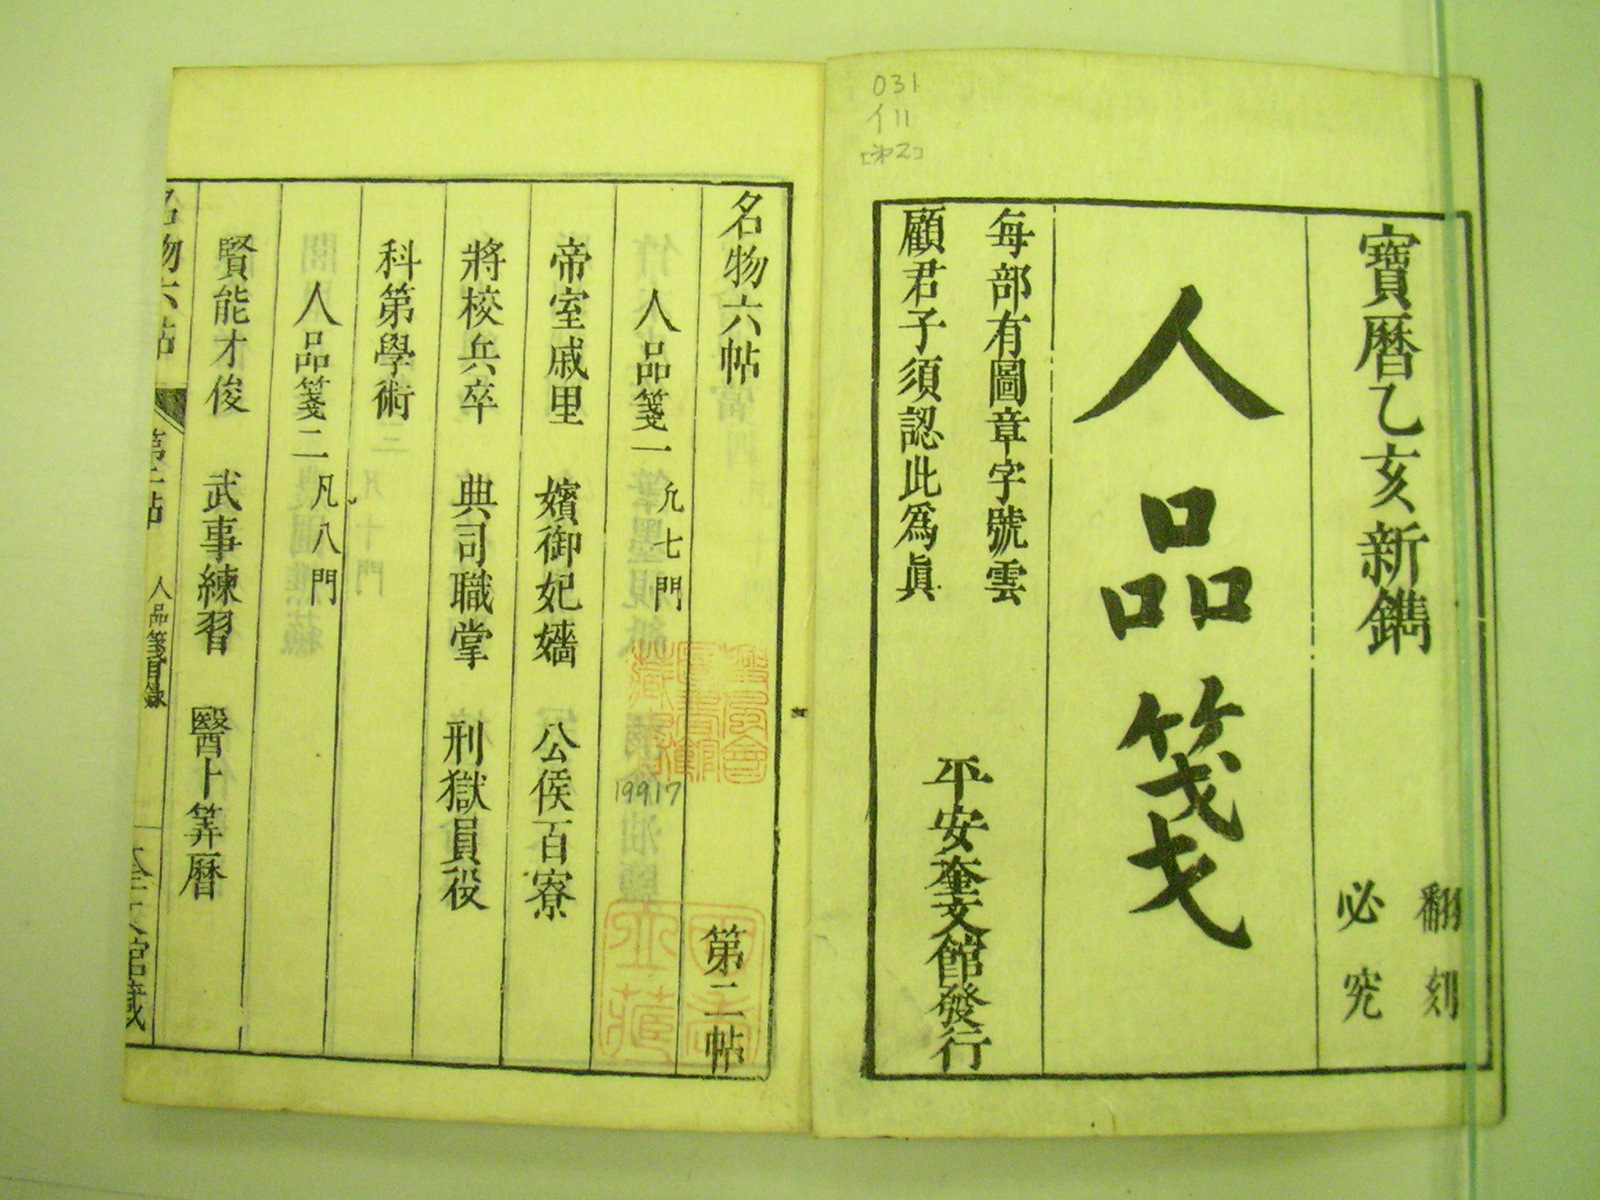 031
イ11
[ネ2]
寶曆乙亥新鐫
翻刻
必究
人品箋
每部有圖章字號雲
顧君子須認此爲眞
平安奎文館發行
名物六帖 第二帖
人品箋一 凡七門
帝室戚里 嬪御妃嬙 公侯百寮
將校兵卒 典司職掌 刑獄員役
科第學術
人品箋二 凡八門
賢能才俊 武事練習 醫卜筭曆
名物六帖 第二帖 人品箋目錄 奎文館藏
19917